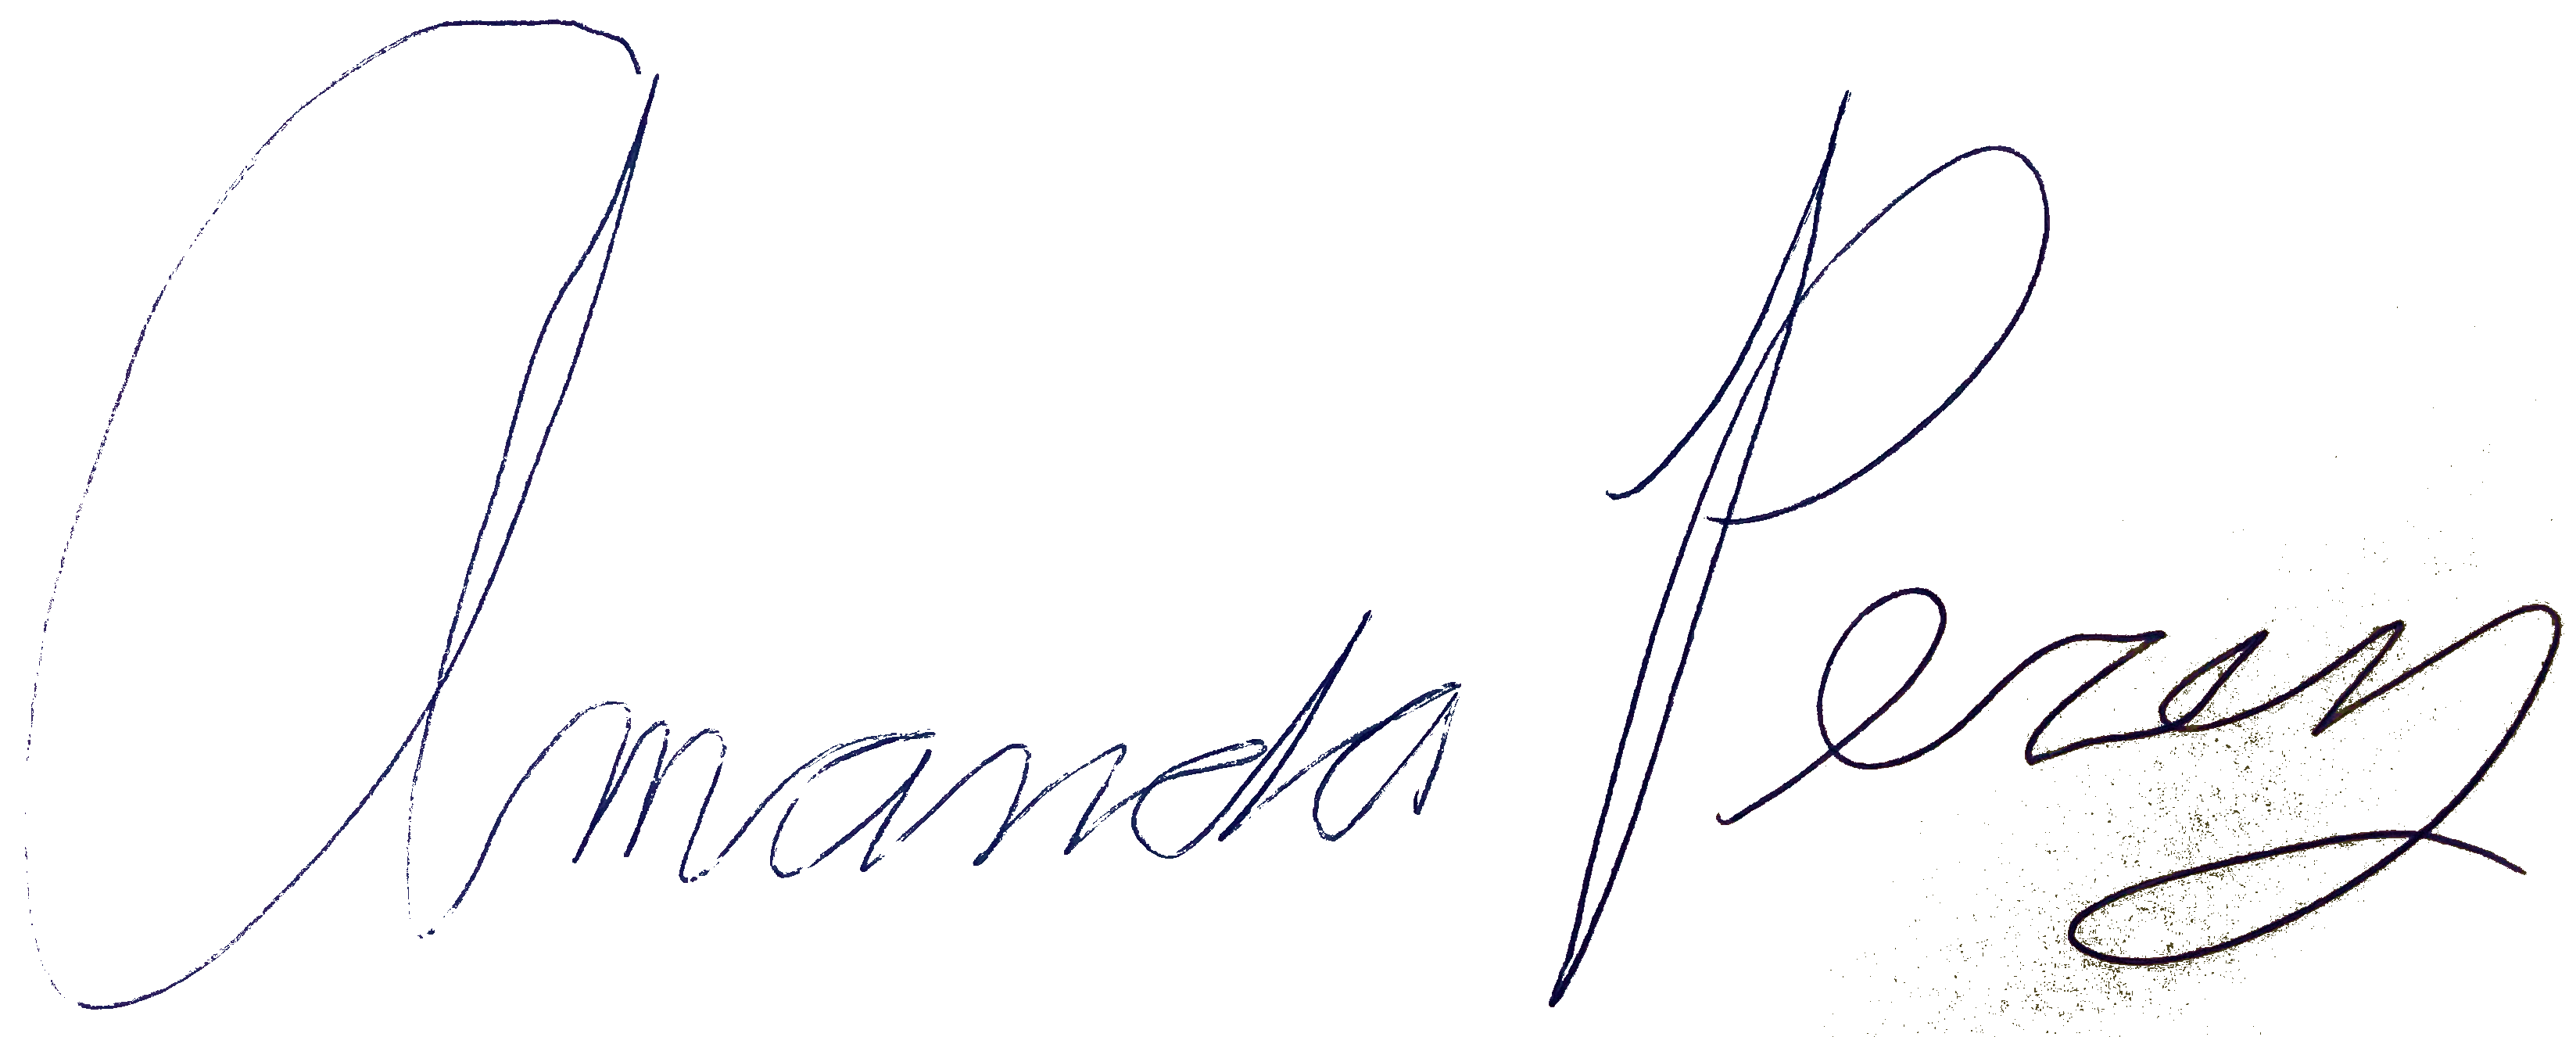 Amanda Perez